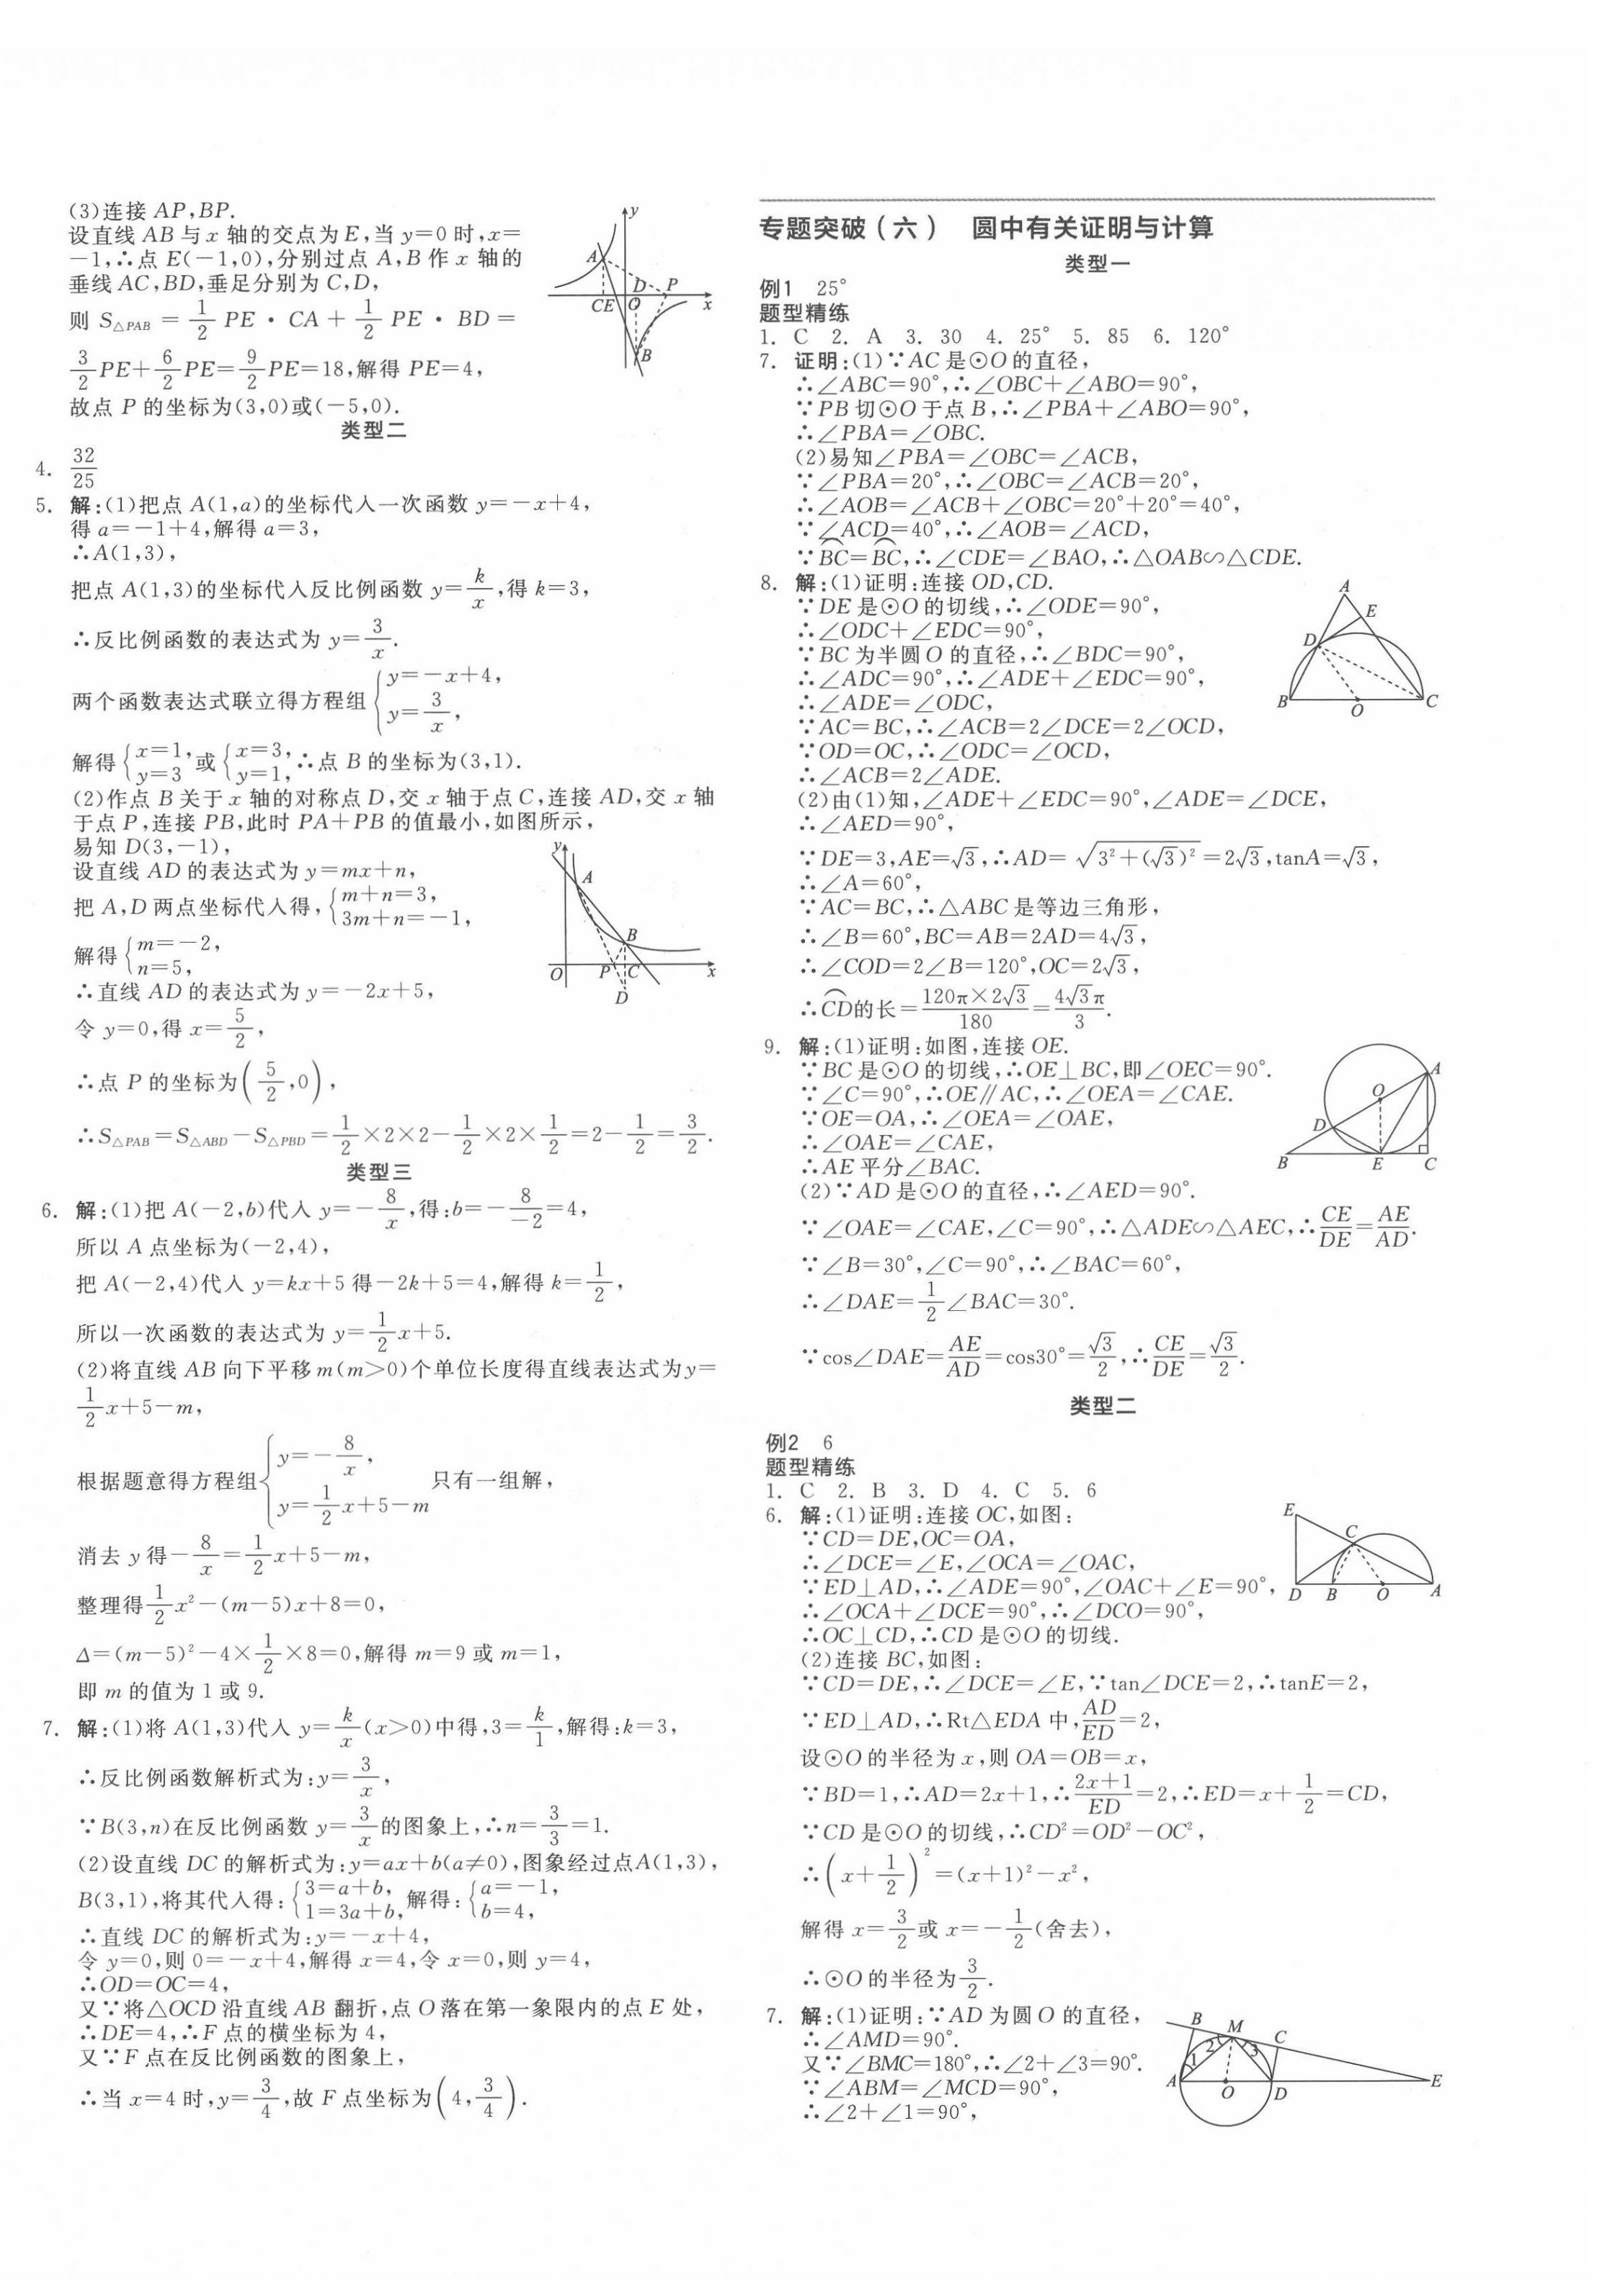 (3)连接 AP,BP.
设直线 AB 与 x 轴的交点为 E,当 y=0 时,x=
-1,∴点 E(-1,0),分别过点 A,B 作 x 轴的
垂线 AC,BD,垂足分别为 C,D,
则 S△PAB = 1/2 PE · CA + 1/2 PE · BD =
3/2 PE+6/2 PE=9/2 PE=18,解得 PE=4,
故点 P 的坐标为(3,0)或(-5,0).
y
A
D
P
C E O
x
B
类型二
4. 32/25
5. 解:(1)把点 A(1,a)的坐标代入一次函数 y=-x+4,
得 a=-1+4,解得 a=3,
∴A(1,3),
把点 A(1,3)的坐标代入反比例函数 y=k/x,得 k=3,
∴反比例函数的表达式为 y=3/x.
两个函数表达式联立得方程组{y=-x+4, y=3/x,
解得{x=1, y=3 或{x=3, y=1, ∴点 B 的坐标为(3,1).
(2)作点 B 关于 x 轴的对称点 D,交 x 轴于点 C,连接 AD,交 x 轴
于点 P,连接 PB,此时 PA+PB 的值最小,如图所示,
易知 D(3,-1),
设直线 AD 的表达式为 y=mx+n,
把 A,D 两点坐标代入得,{m+n=3, 3m+n=-1,
解得{m=-2, n=5,
∴直线 AD 的表达式为 y=-2x+5,
令 y=0,得 x=5/2,
∴点 P 的坐标为(5/2,0),
y
A
B
O P C x
D
∴S△PAB=S△ABD-S△PBD=1/2×2×2-1/2×2×1/2=2-1/2=3/2.
类型三
6. 解:(1)把 A(-2,b)代入 y=-8/x,得:b=-8/-2=4,
所以 A 点坐标为(-2,4),
把 A(-2,4)代入 y=kx+5 得-2k+5=4,解得 k=1/2,
所以一次函数的表达式为 y=1/2x+5.
(2)将直线 AB 向下平移 m(m>0)个单位长度得直线表达式为y=
1/2x+5-m,
根据题意得方程组{y=-8/x, y=1/2x+5-m 只有一组解,
消去 y 得-8/x=1/2x+5-m,
整理得1/2x²-(m-5)x+8=0,
Δ=(m-5)²-4×1/2×8=0,解得 m=9 或 m=1,
即 m 的值为 1 或 9.
7. 解:(1)将 A(1,3)代入 y=k/x(x>0)中得,3=k/1,解得:k=3,
∴反比例函数解析式为:y=3/x,
∵B(3,n)在反比例函数 y=3/x的图象上,∴n=3/3=1.
(2)设直线 DC 的解析式为:y=ax+b(a≠0),图象经过点A(1,3),
B(3,1),将其代入得:{3=a+b, 1=3a+b, 解得:{a=-1, b=4,
∴直线 DC 的解析式为:y=-x+4,
令 y=0,则 0=-x+4,解得 x=4,令 x=0,则 y=4,
∴OD=OC=4,
又∵将△OCD 沿直线 AB 翻折,点 O 落在第一象限内的点 E 处,
∴DE=4,∴F 点的横坐标为 4,
又∵F 点在反比例函数的图象上,
∴当 x=4 时,y=3/4,故 F 点坐标为(4,3/4).
专题突破(六) 圆中有关证明与计算
类型一
例1 25°
题型精练
1. C 2. A 3. 30 4. 25° 5. 85 6. 120°
7. 证明:(1)∵AC 是⊙O 的直径,
∴∠ABC=90°,∴∠OBC+∠ABO=90°,
∵PB 切⊙O 于点 B,∴∠PBA+∠ABO=90°,
∴∠PBA=∠OBC.
(2)易知∠PBA=∠OBC=∠ACB,
∵∠PBA=20°,∴∠OBC=∠ACB=20°,
∴∠AOB=∠ACB+∠OBC=20°+20°=40°,
∵∠ACD=40°,∴∠AOB=∠ACD,
∵BC⌒=BC⌒,∴∠CDE=∠BAO,∴△OAB∽△CDE.
8. 解:(1)证明:连接 OD,CD.
∵DE 是⊙O 的切线,∴∠ODE=90°,
∴∠ODC+∠EDC=90°,
∵BC 为半圆 O 的直径,∴∠BDC=90°,
∴∠ADC=90°,∴∠ADE+∠EDC=90°,
∴∠ADE=∠ODC,
∵AC=BC,∴∠ACB=2∠DCE=2∠OCD,
∵OD=OC,∴∠ODC=∠OCD,
∴∠ACB=2∠ADE.
A
E
D
B O C
(2)由(1)知,∠ADE+∠EDC=90°,∠ADE=∠DCE,
∴∠AED=90°,
∵DE=3,AE=√3,∴AD=√(3²+(√3)²)=2√3,tanA=√3,
∴∠A=60°,
∵AC=BC,∴△ABC 是等边三角形,
∴∠B=60°,BC=AB=2AD=4√3,
∴∠COD=2∠B=120°,OC=2√3,
∴CD⌒的长=120π×2√3/180=4√3π/3.
9. 解:(1)证明:如图,连接 OE.
∵BC 是⊙O 的切线,∴OE⊥BC,即∠OEC=90°.
∵∠C=90°,∴OE∥AC,∴∠OEA=∠CAE.
∵OE=OA,∴∠OEA=∠OAE,
∴∠OAE=∠CAE,
∴AE 平分∠BAC.
A
O
D
B E C
(2)∵AD 是⊙O 的直径,∴∠AED=90°.
∵∠OAE=∠CAE,∠C=90°,∴△ADE∽△AEC,∴CE/DE=AE/AD.
∵∠B=30°,∠C=90°,∴∠BAC=60°,
∴∠DAE=1/2∠BAC=30°.
∵cos∠DAE=AE/AD=cos30°=√3/2,∴CE/DE=√3/2.
类型二
例2 6
题型精练
1. C 2. B 3. D 4. C 5. 6
6. 解:(1)证明:连接 OC,如图:
∵CD=DE,OC=OA,
∴∠DCE=∠E,∠OCA=∠OAC,
∵ED⊥AD,∴∠ADE=90°,∠OAC+∠E=90°,
∴∠OCA+∠DCE=90°,∴∠DCO=90°,
∴OC⊥CD,∴CD 是⊙O 的切线.
E
C
D B O A
(2)连接 BC,如图:
∵CD=DE,∴∠DCE=∠E,∵tan∠DCE=2,∴tanE=2,
∵ED⊥AD,∴Rt△EDA 中,AD/ED=2,
设⊙O 的半径为 x,则 OA=OB=x,
∵BD=1,∴AD=2x+1,∴2x+1/ED=2,∴ED=x+1/2=CD,
∵CD 是⊙O 的切线,∴CD²=OD²-OC²,
∴(x+1/2)²=(x+1)²-x²,
解得 x=3/2或 x=-1/2(舍去),
∴⊙O 的半径为3/2.
7. 解:(1)证明:∵AD 为圆 O 的直径,
∴∠AMD=90°.
又∵∠BMC=180°,∴∠2+∠3=90°.
∵∠ABM=∠MCD=90°,
∴∠2+∠1=90°,
B M C
1 2 3
A O D E